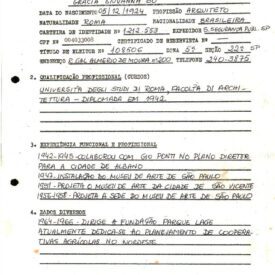 GRACIA GIOVANNA BO
DATA DO NASCIMENTO 05/12/1924 PROFISSÃO ARQUITETO
NATURALIDADE ROMA NACIONALIDADE BRASILEIRA
CARTEIRA DE IDENTIDADE Nº 1.212.553 EXPEDIDOR S.SEGURANÇA PUBL. SP
CPF Nº CERTIFICADO DE RESERVISTA Nº
TITULO DE ELEITOR Nº 108606 ZONA 52 SEÇÃO 322 SP
ENDEREÇO R. GAL. ALMERIO DE MOURA nº 200 TELEFONE 240-3875
2. QUALIFICAÇÃO PROFISSIONAL (CURSOS)
UNIVERSITÀ DEGLI STUDI DI ROMA, FACOLTÀ DI ARCHI-
TETTURA - DIPLOMADA EM 1942.
3. EXPERIÊNCIA FUNCIONAL E PROFISSIONAL
1942-1945-COLABOROU COM GIO PONTI NO PLANO DIRETOR
PARA A CIDADE DE ALBANO
1947-INSTALAÇÃO DO MUSEU DE ARTE DE SÃO PAULO
1951-PROJETA O MUSEU DE ARTE DA CIDADE DE SÃO VICENTE
1957-1958-PROJETA A SEDE DO MUSEU DE ARTE DE SÃO PAULO
4. DADOS DIVERSOS
1964-1966- DIRIGE A FUNDAÇÃO PARQUE LAGE
ATUALMENTE DEDICA-SE AO PLANEJAMENTO DE COOPERA-
TIVAS AGRÍCOLAS NO NORDESTE.